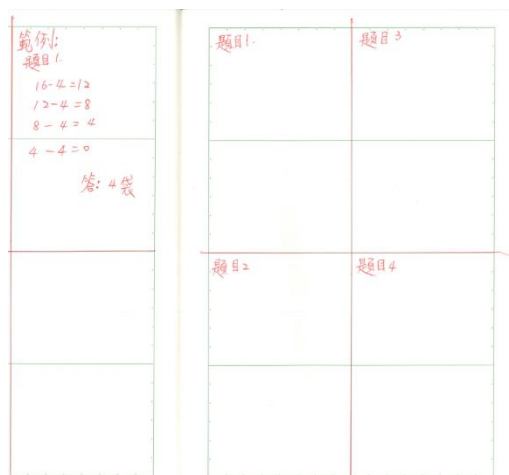 範例:
題目1.
16-4=12
12-4=8
8-4=4
4-4=0
答: 4袋
題目1.
題目3
題目2
題目4